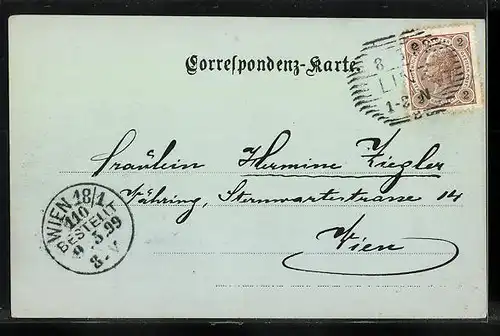 Correspondenz-Karte.
2 2
8
LI
1-2 N
Fräulein Hermine Ziegler
Währing, Sternwartestraße 14
Wien
WIEN 18/1
110
BESTELLT
9.5.99
8.V